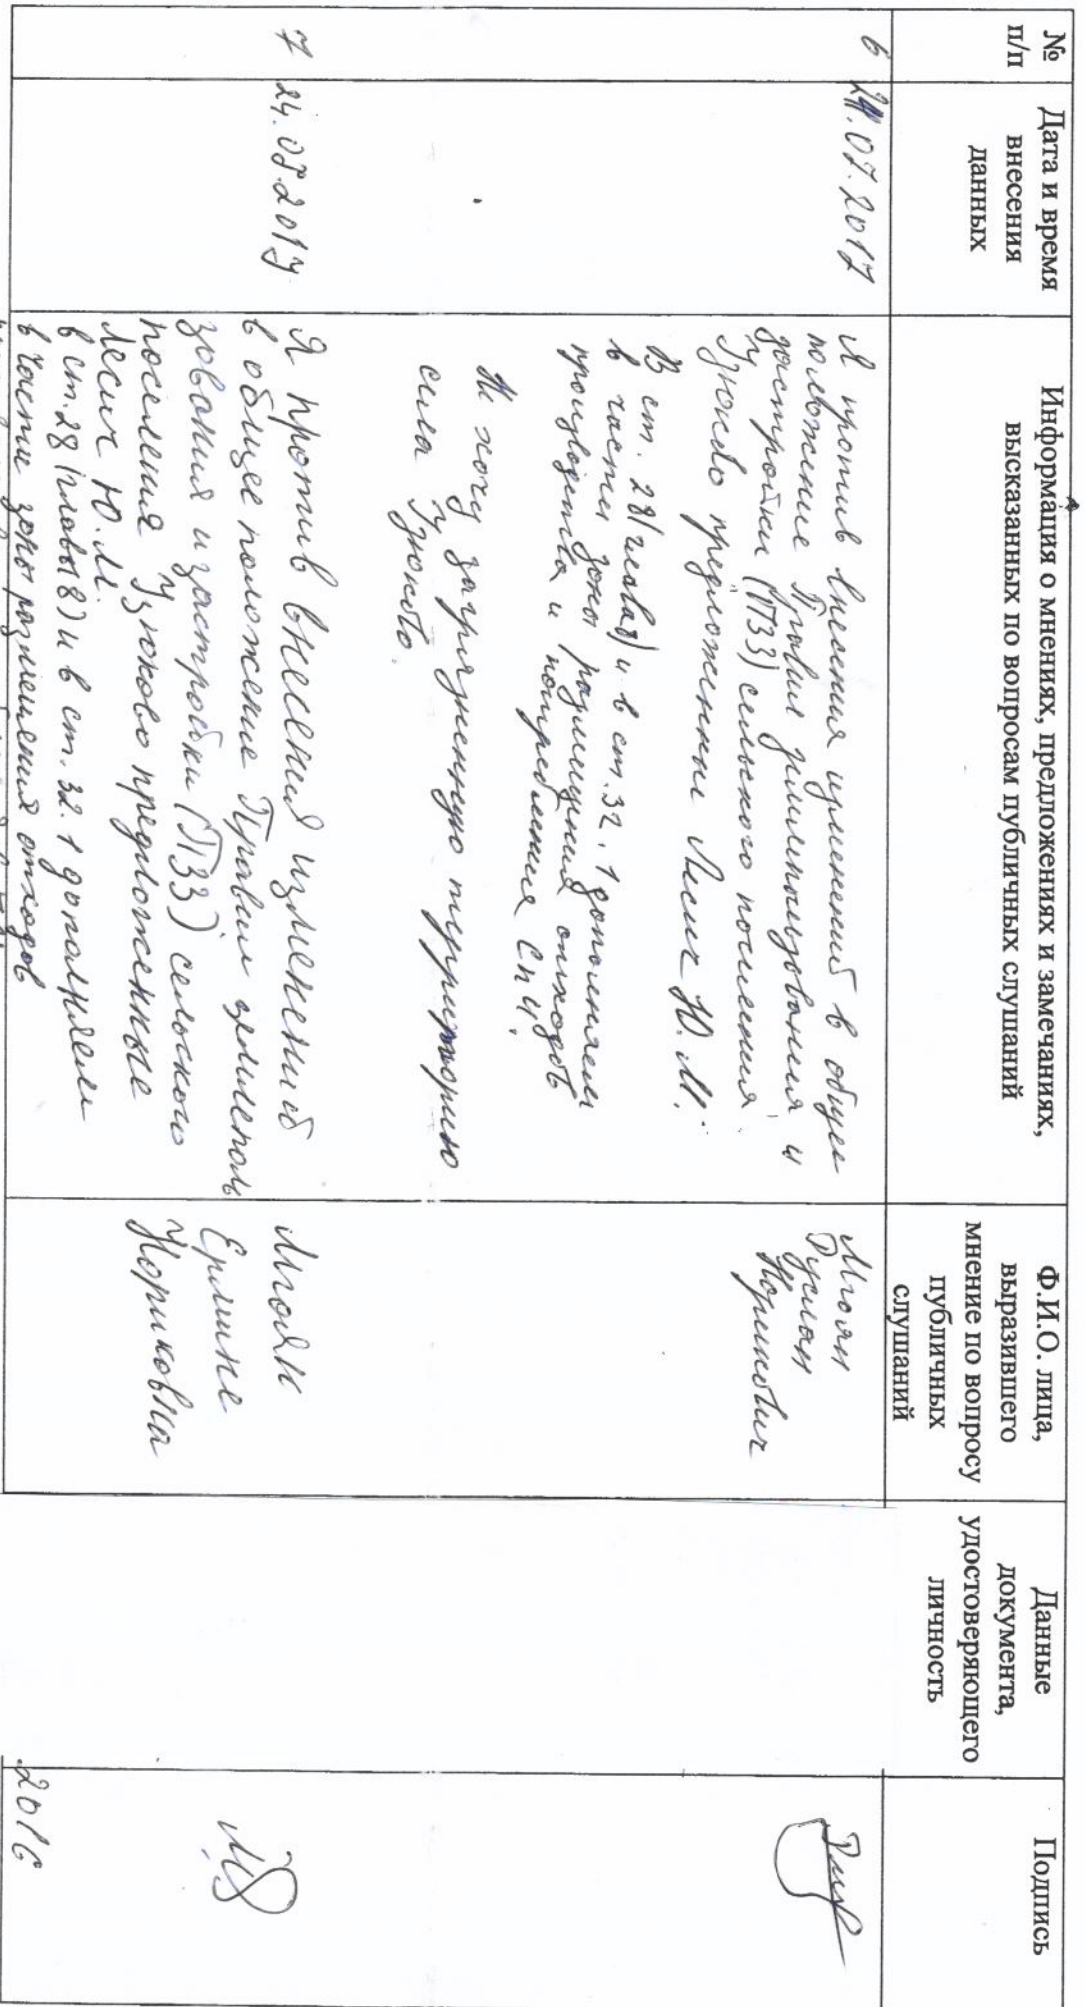 №
п/п
Дата и время
внесения
данных
Информация о мнениях, предложениях и замечаниях,
высказанных по вопросам публичных слушаний
Ф.И.О. лица,
выразившего
мнение по вопросу
публичных
слушаний
Данные
документа,
удостоверяющего
личность
Подпись
6
24.07.2017
Я против внесения изменений в общее
положение Правил землепользования и
застройки (ПЗЗ) сельского поселения
Узюково предложенные Лесич Ю.М.
В ст. 28 (глава 8) и в ст. 32.1 дополняем
в части зоны размещения отходов
производства и потребления Сп4.
Не хочу загрязненную территорию
села Узюково.
Мгоян
Руслан
Норикович
7
24.07.2017
Я против внесения изменений
в общее положение Правил землеполь
зования и застройки (ПЗЗ) сельского
поселения Узюково предложенные
Лесич Ю.М.
в ст. 28 (главы 8) и в ст. 32.1 дополняем
в части зоны размещения отходов
Мгоян
Ермине
Нориковна
2016